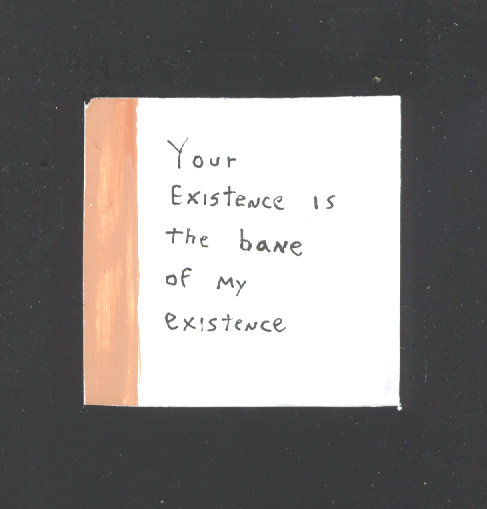 Your
Existence is
the bane
of my
existence